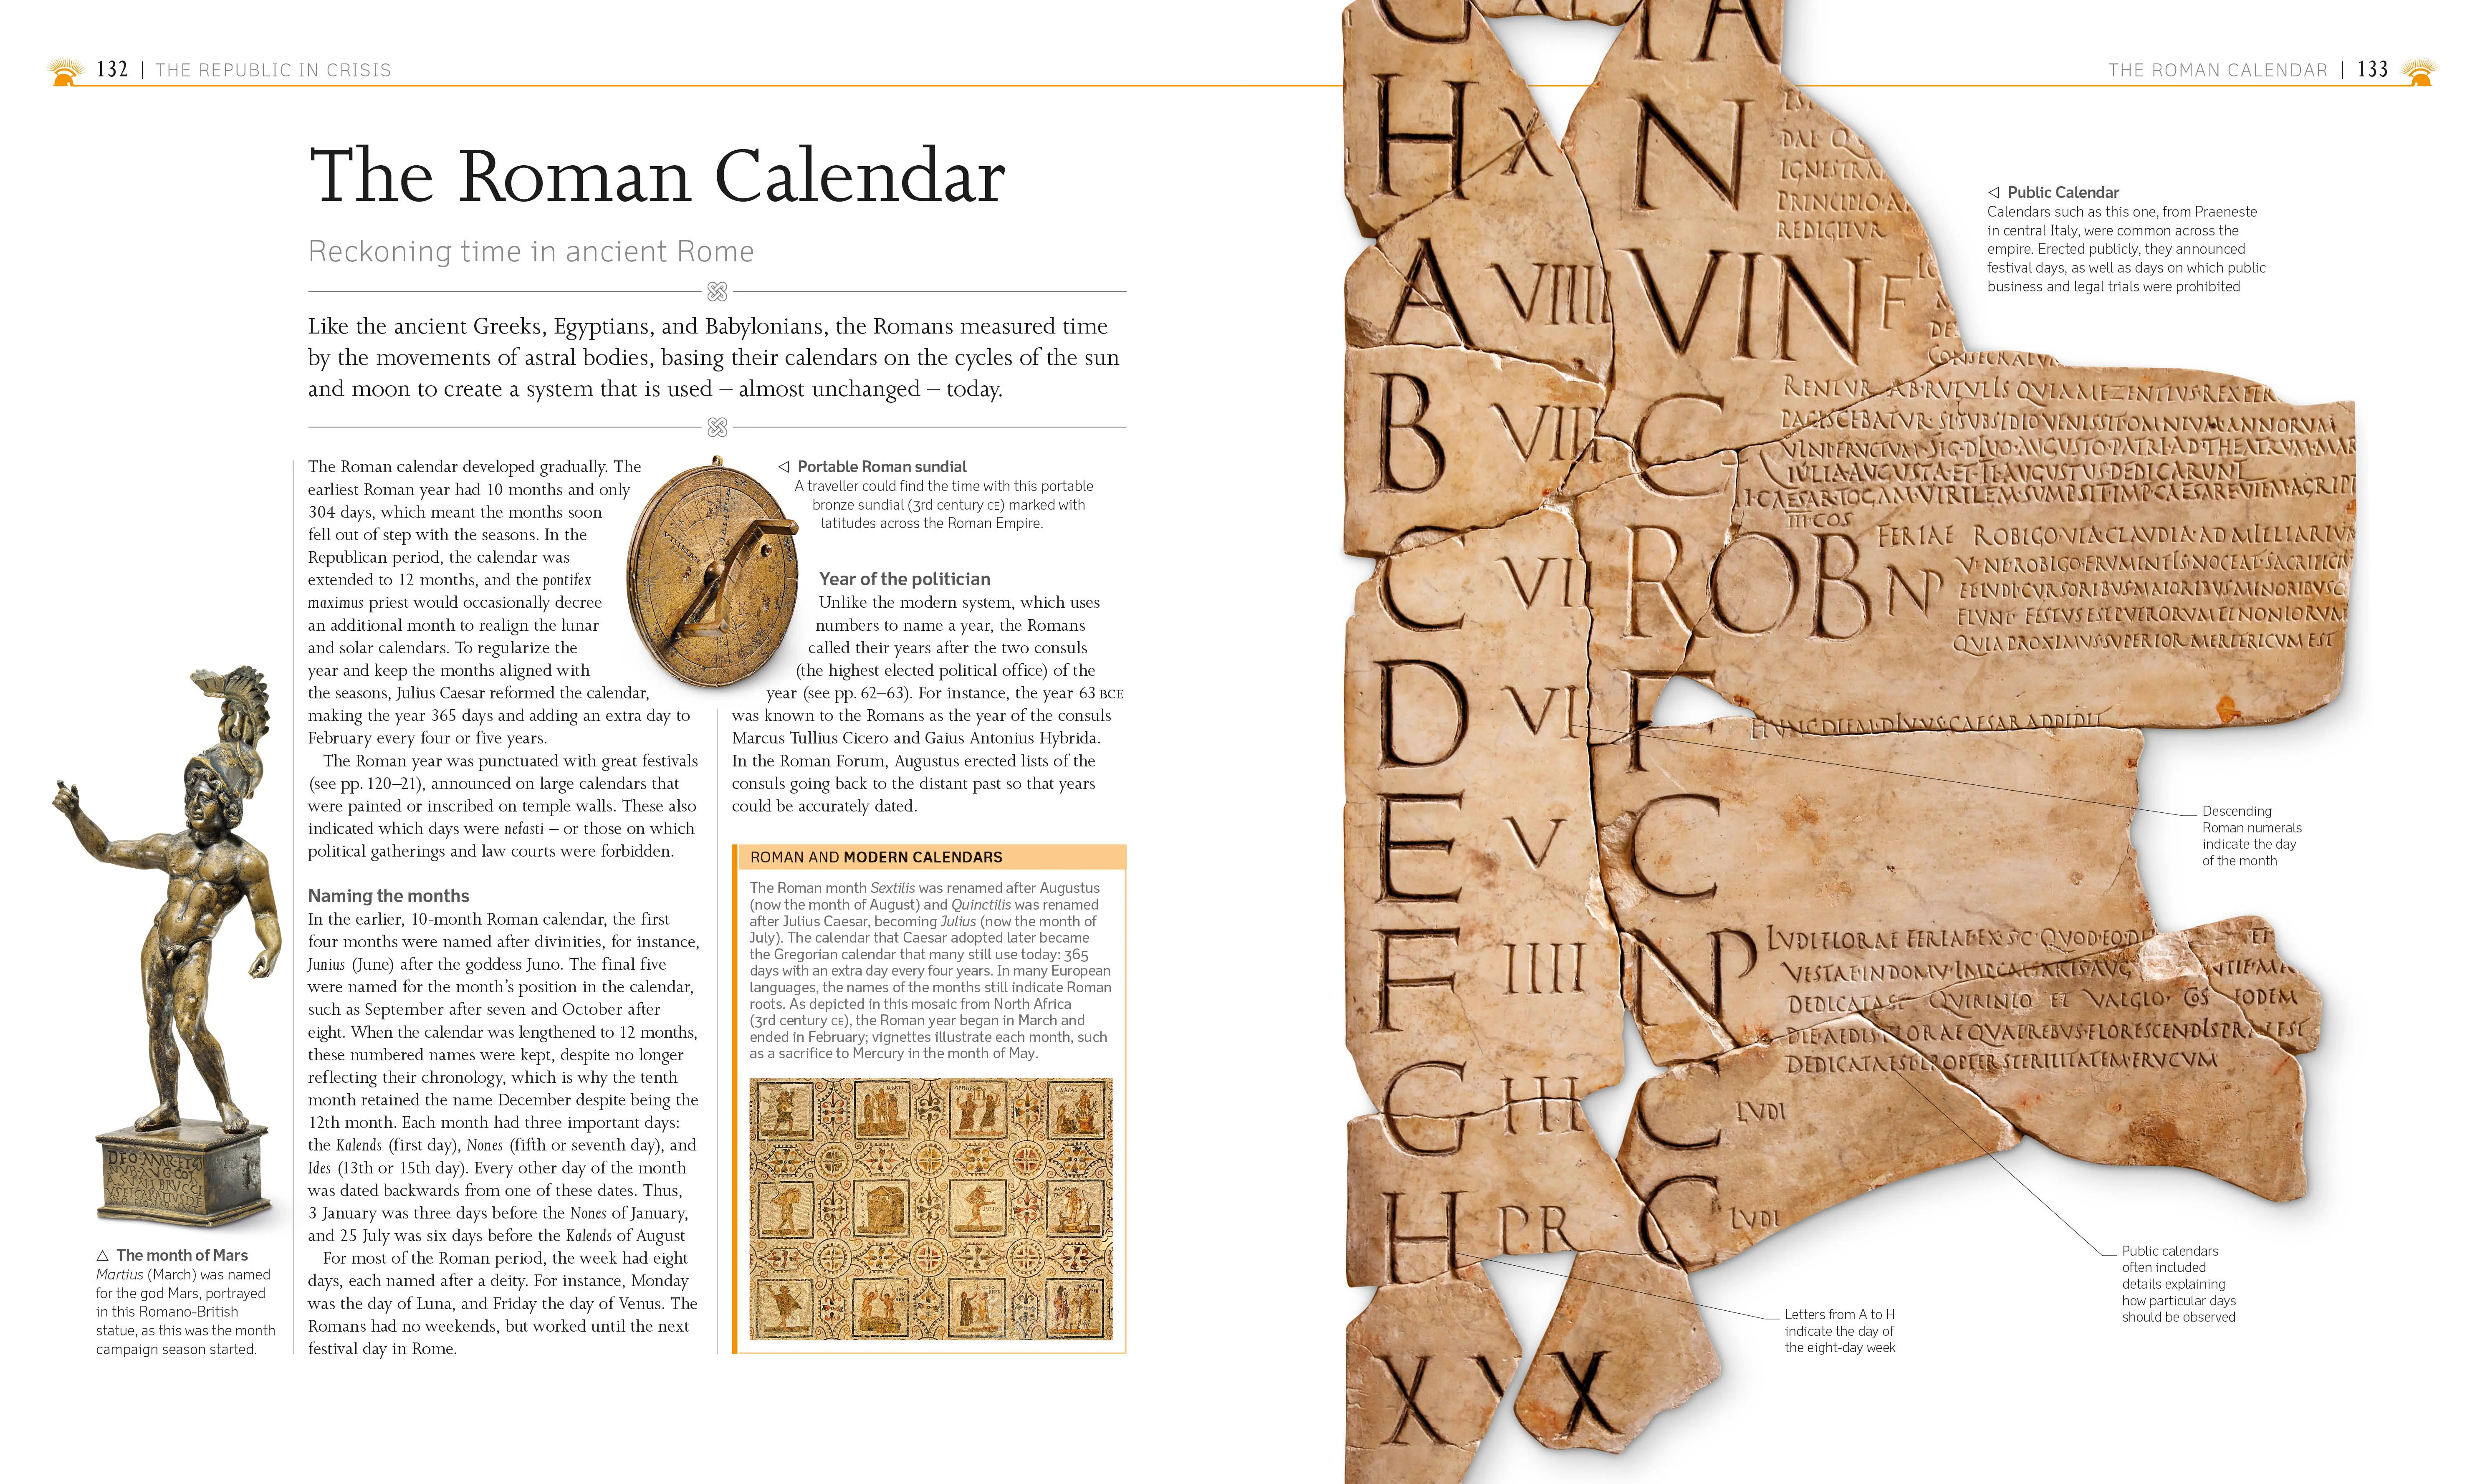 132 | THE REPUBLIC IN CRISIS
The Roman Calendar
Reckoning time in ancient Rome
Like the ancient Greeks, Egyptians, and Babylonians, the Romans measured time
by the movements of astral bodies, basing their calendars on the cycles of the sun
and moon to create a system that is used – almost unchanged – today.
The Roman calendar developed gradually. The
earliest Roman year had 10 months and only
304 days, which meant the months soon
fell out of step with the seasons. In the
Republican period, the calendar was
extended to 12 months, and the pontifex
maximus priest would occasionally decree
an additional month to realign the lunar
and solar calendars. To regularize the
year and keep the months aligned with
the seasons, Julius Caesar reformed the calendar,
making the year 365 days and adding an extra day to
February every four or five years.
The Roman year was punctuated with great festivals
(see pp. 120–21), announced on large calendars that
were painted or inscribed on temple walls. These also
indicated which days were nefasti – or those on which
political gatherings and law courts were forbidden.
Naming the months
In the earlier, 10-month Roman calendar, the first
four months were named after divinities, for instance,
Junius (June) after the goddess Juno. The final five
were named for the month's position in the calendar,
such as September after seven and October after
eight. When the calendar was lengthened to 12 months,
these numbered names were kept, despite no longer
reflecting their chronology, which is why the tenth
month retained the name December despite being the
12th month. Each month had three important days:
the Kalends (first day), Nones (fifth or seventh day), and
Ides (13th or 15th day). Every other day of the month
was dated backwards from one of these dates. Thus,
3 January was three days before the Nones of January,
and 25 July was six days before the Kalends of August
For most of the Roman period, the week had eight
days, each named after a deity. For instance, Monday
was the day of Luna, and Friday the day of Venus. The
Romans had no weekends, but worked until the next
festival day in Rome.
△ The month of Mars
Martius (March) was named
for the god Mars, portrayed
in this Romano-British
statue, as this was the month
campaign season started.
◁ Portable Roman sundial
A traveller could find the time with this portable
bronze sundial (3rd century CE) marked with
latitudes across the Roman Empire.
Year of the politician
Unlike the modern system, which uses
numbers to name a year, the Romans
called their years after the two consuls
(the highest elected political office) of the
year (see pp. 62–63). For instance, the year 63 BCE
was known to the Romans as the year of the consuls
Marcus Tullius Cicero and Gaius Antonius Hybrida.
In the Roman Forum, Augustus erected lists of the
consuls going back to the distant past so that years
could be accurately dated.
ROMAN AND MODERN CALENDARS
The Roman month Sextilis was renamed after Augustus
(now the month of August) and Quinctilis was renamed
after Julius Caesar, becoming Julius (now the month of
July). The calendar that Caesar adopted later became
the Gregorian calendar that many still use today: 365
days with an extra day every four years. In many European
languages, the names of the months still indicate Roman
roots. As depicted in this mosaic from North Africa
(3rd century CE), the Roman year began in March and
ended in February; vignettes illustrate each month, such
as a sacrifice to Mercury in the month of May.
THE ROMAN CALENDAR | 133
◁ Public Calendar
Calendars such as this one, from Praeneste
in central Italy, were common across the
empire. Erected publicly, they announced
festival days, as well as days on which public
business and legal trials were prohibited
H X N
PRINCIPIO
REDIGITUR
A VIIII VIN F
B VIII C
IULIA AUGUSTA ET TI AUGUSTUS DEDICARUNT
III COS
C VII ROB NP
FERIAE ROBIGO VIA CLAUDIA AD MILLIARIUM
D VI F
E V C
F IIII NP
DEDICATAST QUIRINIO ET VALGIO COS EODEM
G III C LUDI
H PR C LUDI
XXX
Descending
Roman numerals
indicate the day
of the month
Public calendars
often included
details explaining
how particular days
should be observed
Letters from A to H
indicate the day of
the eight-day week